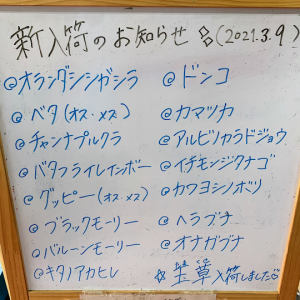 新入荷のお知らせ (2021.3.9)
@オランダシシガシラ
@ベタ(オス・メス)
@チャンナプルクラ
@バタフライレインボー
@グッピー(オス・メス)
@ブラックモーリー
@バルーンモーリー
@キタノアカヒレ
@ドンコ
@カマツカ
@アルビノカラドジョウ
@イチモンジタナゴ
@カワヨシノボリ
@ヘラブナ
@オナガブナ
草入荷しました